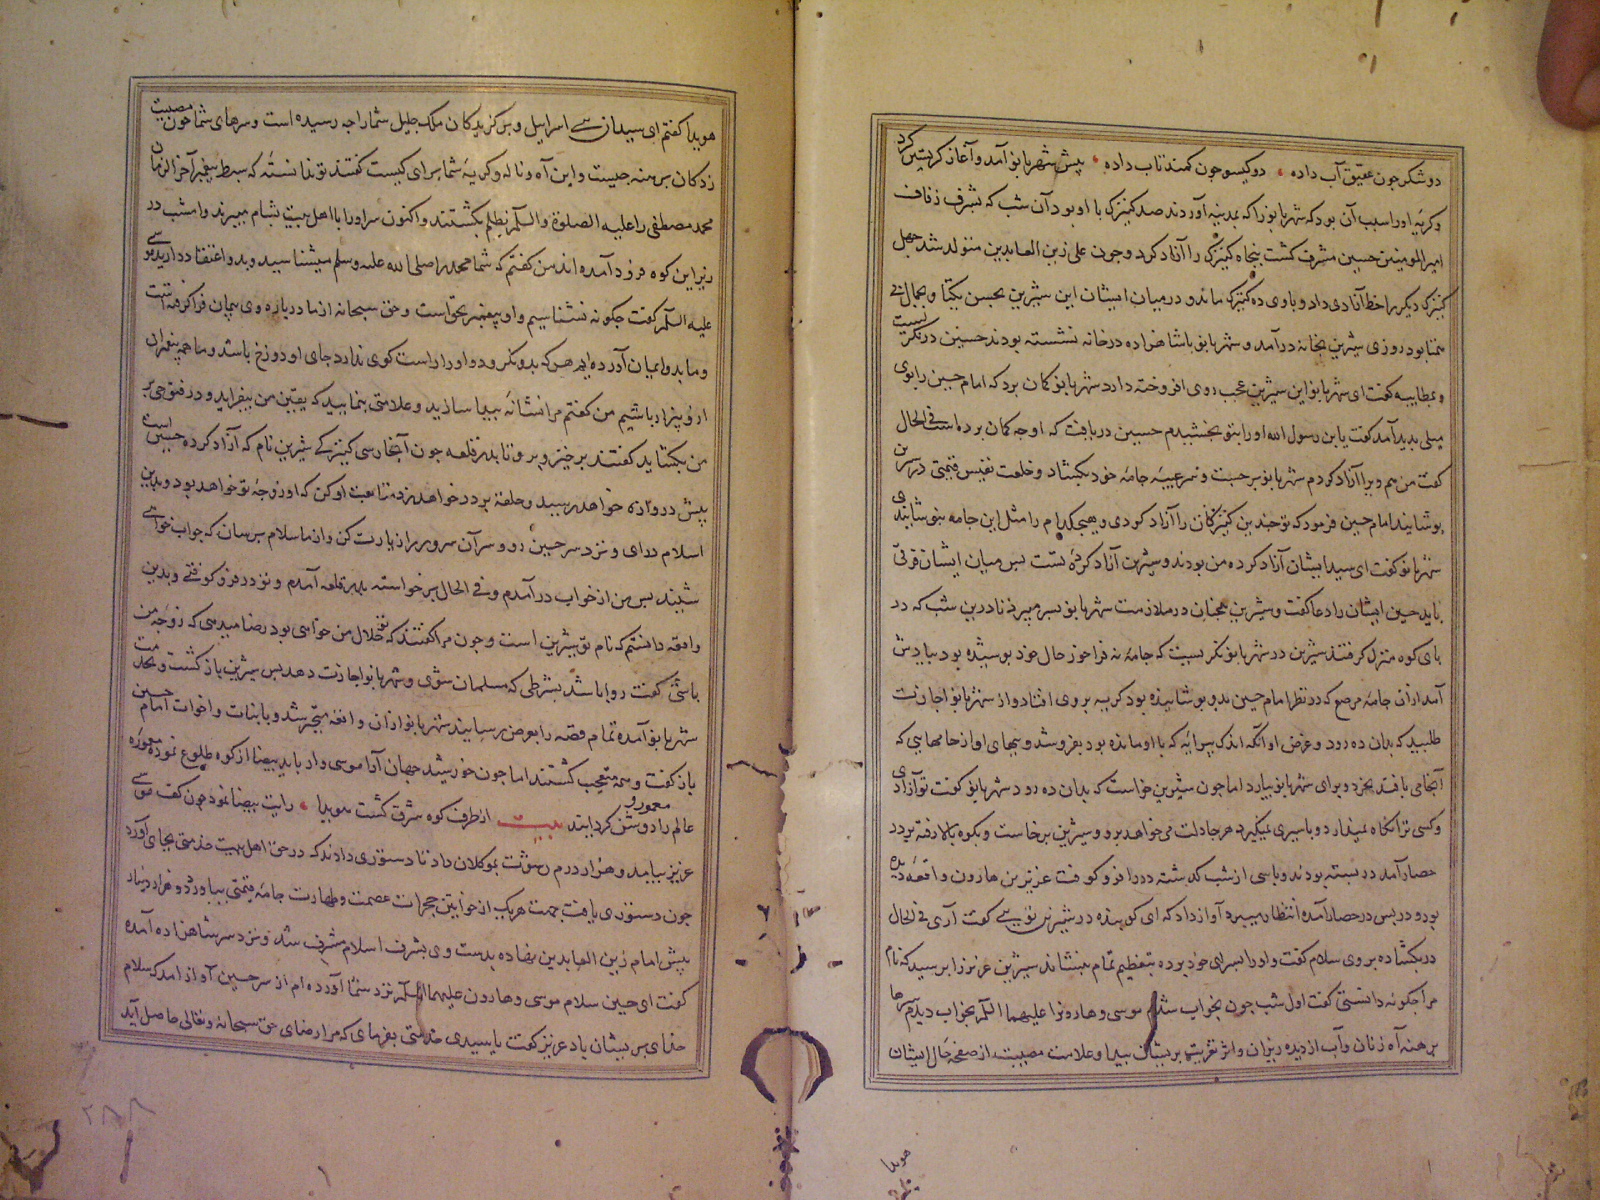 دو شکر چون عقیق آب داده • دو کیسو چون کمند تاب داده • پیش شهربانو آمد و آغاز کریستن کرد
و کریه او را سبب آن بود که شهربانو را که بمدینه آوردند صد کنیزک با او بود آن شب که بشرف زفاف
امیرالمومنین حسین مشرف کشت پنجاه کنیزک را آزاد کرد و چون علی زین العابدین متولد شد چهل
کنیزک دیکر را خط آزادی داد و با وی ده کنیزک ماند و در میان ایشان این شیرین بحسن یکتا و بجمال بی
همتا بود روزی شیرین بخانه درآمد و شهربانو با شاهزاده در خانه نشسته بودند حسین درنکریست
و بمطایبه کفت ای شهربانو این شیرین عجب روی افروخته دارد شهربانو کمان برد که امام حسین را بوی
میلی پدید آمد کفت یا بن رسول الله او را بتو بخشیدم حسین دریافت که او چه کمان برده است فی الحال
کفت من هم ویرا آزاد کردم شهربانو برجست و سر عیبه جامه خود بکشاد و خلعت نفیس قیمتی در شیرین
پوشانید امام حسین فرمود که تو چندین کنیزکان را آزاد کردی و هیچکدام را مثل این جامه نپوشانیدی
شهربانو کفت ای سید ایشان آزاد کرده من بودند و شیرین آزاد کرده تست پس میان ایشان فرقی
باید حسین ایشان را دعا کفت و شیرین همچنان در ملازمت شهربانو بسر میبرد تا درین شب که در
پای کوه منزل کرفتند شیرین در شهربانو نکریست که جامه نه فراخور حال خود پوشیده بود بیادش
آمد از ان جامه مرصع که در نظر امام حسین بدو پوشانیده بود کریه بر وی افتاد و از شهربانو اجازت
طلبید که بدان ده رود و غرض او آنکه اندک پیرایه که با او مانده بود بفروشد و ببهای او از جامهایی که
آنجا می بافند بخرد و برای شهربانو بیارد اما چون شیرین خواست که بدان ده رود شهربانو کفت تو آزادی
و کسی ترا نکاه نمیدارد و باسیری نمیکیرد هر جا دلت می خواهد برو و شیرین برخاست و بکوه بالا رفته بر در
حصار آمد در بسته بودند و پاسی از شب کذشته در را فرو کوفت عزیز بن هارون واقعه دیده
بود و در پس در حصار آمده انتظار میبرد آواز داد که ای کوبنده در شیرین توئی کفت آری فی الحال
در بکشاد و بر وی سلام کفت و او را بسرای خود برده بتعظیم تمام بنشاند شیرین عزیز را پرسید که نام
مرا چکونه دانستی کفت اول شب چون بخواب شدم موسی و هارون را علیهما السلام بخواب دیدم سرها
برهنه آه زنان و آب از دیده ریزان و اثر تعزیت بر ایشان پیدا و علامت مصیبت از صفحه حال ایشان
هویدا
هویدا کفتم ای سیدان بنی اسرائیل و برکزیدکان ملک جلیل شما را چه رسیده است و سرهای شما چون مصیبت
زدکان برهنه چیست و این آه و ناله و کریه شما برای کیست کفتند تو ندانسته که سبط پیغمبر آخر الزمان
محمد مصطفی را علیه الصلوة والسلام بظلم بکشتند و اکنون سر او را با اهل بیت بشام میبرند و امشب در
زیر این کوه فرود آمده اند من کفتم که شما محمد را صلی الله علیه وسلم میشناسید و بدو اعتقاد دارید موسی
علیه السلام کفت چکونه نشناسیم و او پیغمبر بحق است و حق سبحانه از ما درباره وی پیمان فرا کرفته است
و ما بدو ایمان آورده ایم هر که بدو نکرود و او را راست کوی ندارد جای او دوزخ باشد و ما همه پیغمبران
ازو بیزار باشیم من کفتم مرا نشانه پیدا سازید و علامتی بنمایید که یقین من بیفزاید و در فتوحی بر
من بکشاید کفتند برخیز و برو تا بدر قلعه چون آنجا رسی کنیزکی شیرین نام که آزاد کرده حسین است
پیش دروازه خواهد رسید و حلقه بر در خواهد زد متابعت او کن که او زوجه تو خواهد بود و بدین
اسلام درای و نزد سر حسین رو و سر آن سرور را زیارت کن و از ما سلام برسان که جواب خواهی
شنید پس من از خواب درآمدم و فی الحال برخواسته بدر قلعه آمدم و تو در فرو کوفتی و بدین
واقعه دانستم که نام تو شیرین است و چون مرا کفتند که تو حلال من خواهی بود رضا میدهی که زوجه من
باشی کفت روا باشد بشرطی که مسلمان شوی و شهربانو اجازت دهد پس شیرین بازکشت و بخدمت
شهربانو آمده تمام قصه را بعرض رسانید شهربانو از ان واقعه متحیر شد و با بنات و اخوات امام حسین
باز کفت و همه متعجب کشتند اما چون خورشید جهان آرا موسی وار ید بیضا از کوه طلوع نموده معموره
عالم را روشن کردانید بیت از طرف کوه شرق کشت هویدا • رایت بیضا نمود چون کف موسی
عزیز بیامد و هزار درم رشوت بموکلان داد تا دستوری دادند که در حق اهل بیت خدمتی بجای آورد
چون دستوری یافت بجهت هر یک از خواتین حجرات عصمت و طهارت جامه قیمتی بیاورد و هزار دینار
پیش امام زین العابدین نهاده بدست وی بشرف اسلام مشرف شد و نزد سر شاهزاده آمده
کفت ای حسین سلام موسی و هارون علیهما السلام نزد شما آورده ام از سر حسین آواز آمد که سلام
خدای بر ایشان باد عزیز کفت یا سیدی خدمتی بفرمای که مرا رضای حق سبحانه و تعالی حاصل آید
۲۸۸